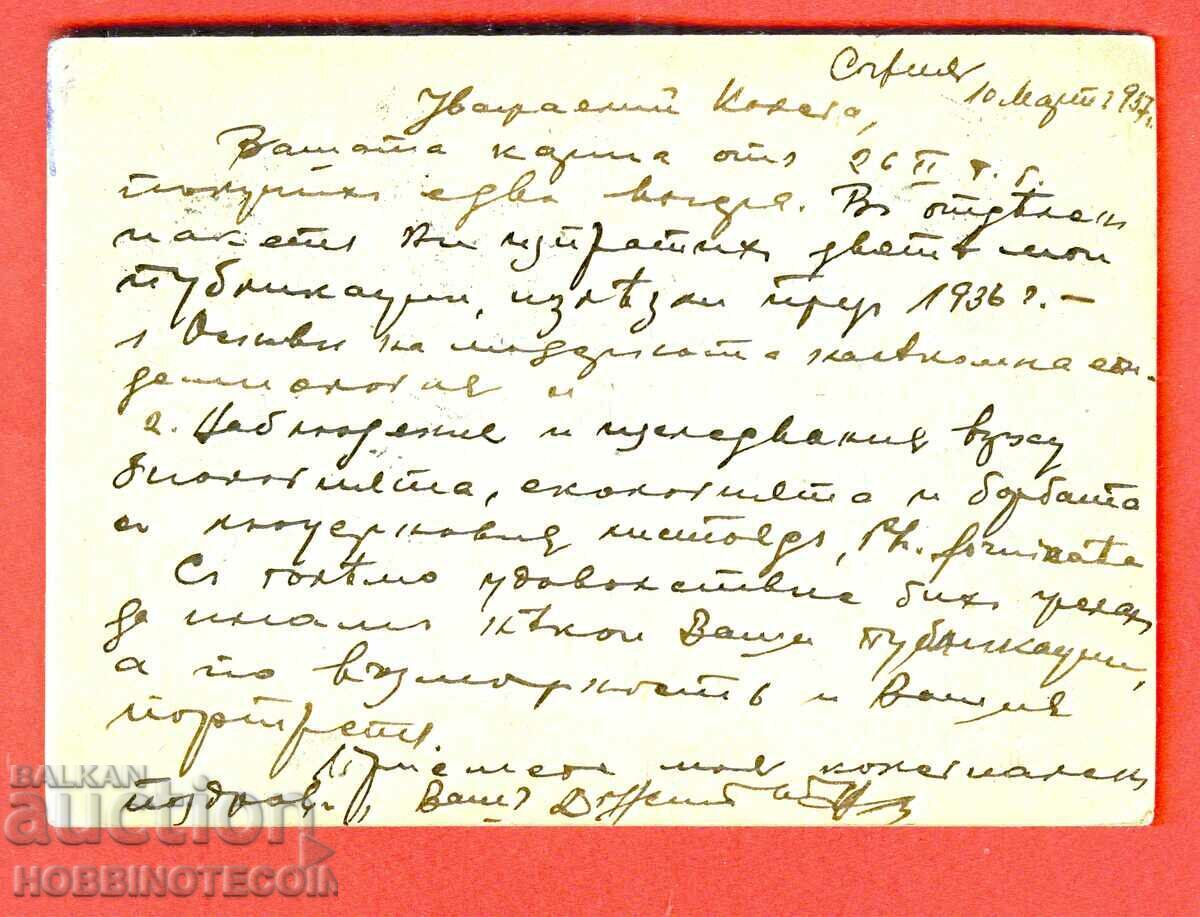 София
10 Мартъ 1937 г.
Уважаемий Колега,
Вашата карта отъ 26 II т. г.
получихъ едва вчера. Въ отдѣленъ
пакетъ Ви изпратихъ двете мои
публикации, излѣзли презъ 1936 г. –
1 Основи на модерната насѣкомна епи-
демиология и
2. Наблюдение и изследвания върху
биологията, екологията и борбата
съ люцерновия листоядъ, Ph. fornicata
Съ голѣмо удоволствие бихъ желалъ
да имамъ нѣкои Ваши публикации,
а по възможность и Вашия
портретъ.
Приемете моя колегиаленъ
поздравъ, Вашъ
BALKAN
auction
HOBBINOTECOIN